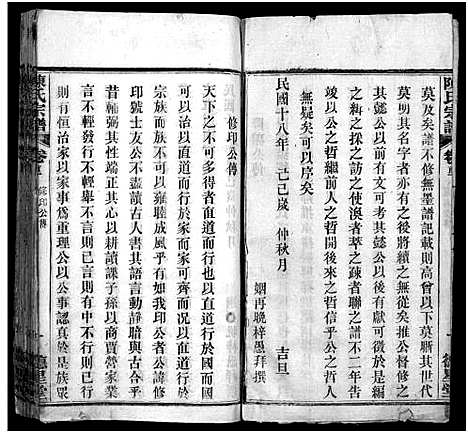 陳氏宗譜
莫及矣譜不修無墨譜記載則高曾以下莫辭其世代
莫明其名字者亦有之後將續之無從矣推公督修之
其懿公以前之文獻可考其懿公以後之人數可稽合
之糾之採之訪之使渙者萃之疎者聯之譜不二年告
竣之公之哲繼前人之哲開後來之哲信乎公之哲
無疑矣可以序矣
民國十八年 己巳歲 仲秋月 吉旦
姻再晚梓愚拜撰
修印公傳
天下之不可多得者直道而行於國而
可以治以直道而行於家而家可齊以直道而行於
宗族而族人不可以雍睦成風乎有如我印公者可
印號士友公不盡讀古人書其語言動靜暗與古合于
昔輔弼其性端正其心以耕讀課子孫以商賈營家業
言不輕發行不輕舉不言則已言之而行不行則已行
則有恒治家以家事為重理公以公事認真於是族眾
陳氏宗譜
修印公傳
德星堂